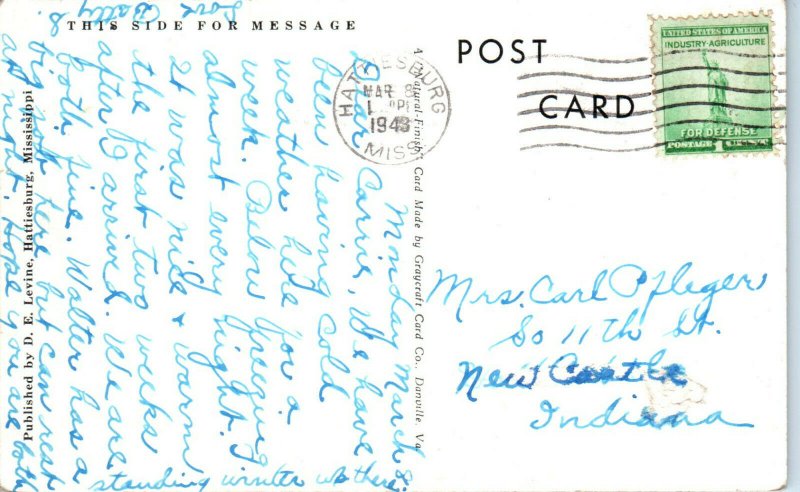 THIS SIDE FOR MESSAGE
Monday March 8.
Dear Carrie, We have
been having cold
weather here for a
week. Below freezing
almost every night.
It was nice & warm
the first two weeks
after I arrived. We are
both fine. Walter has a
here but can rest
at night. Hope you are both
standing winter up there.
Love Betty &
Published by D. E. Levine, Hattiesburg, Mississippi
A "Natural-Finish" Card Made by Graycraft Card Co., Danville, Va.
POST
CARD
HATTIESBURG
MAR 8
1 PM
1943
MISS.
UNITED STATES OF AMERICA
INDUSTRY-AGRICULTURE
FOR DEFENSE
POSTAGE 1 CENT
Mrs. Carl Pfleger
So 11th St.
New Castle
Indiana